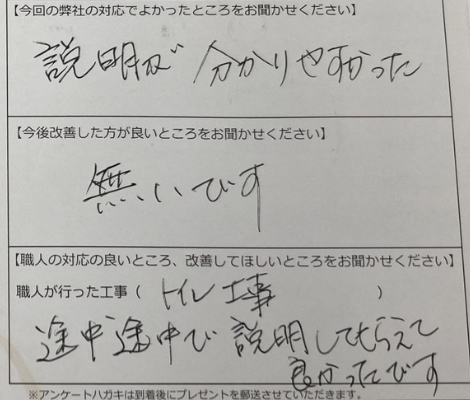 【今回の弊社の対応でよかったところをお聞かせください】
説明が 分かりやすかった
【今後改善した方が良いところをお聞かせください】
無いです
【職人の対応の良いところ、改善してほしいところをお聞かせください】
職人が行った工事（ トイレ工事 ）
途中途中で 説明してもらえて
良かったです
※アンケートハガキは到着後にプレゼントを郵送させていただきます。